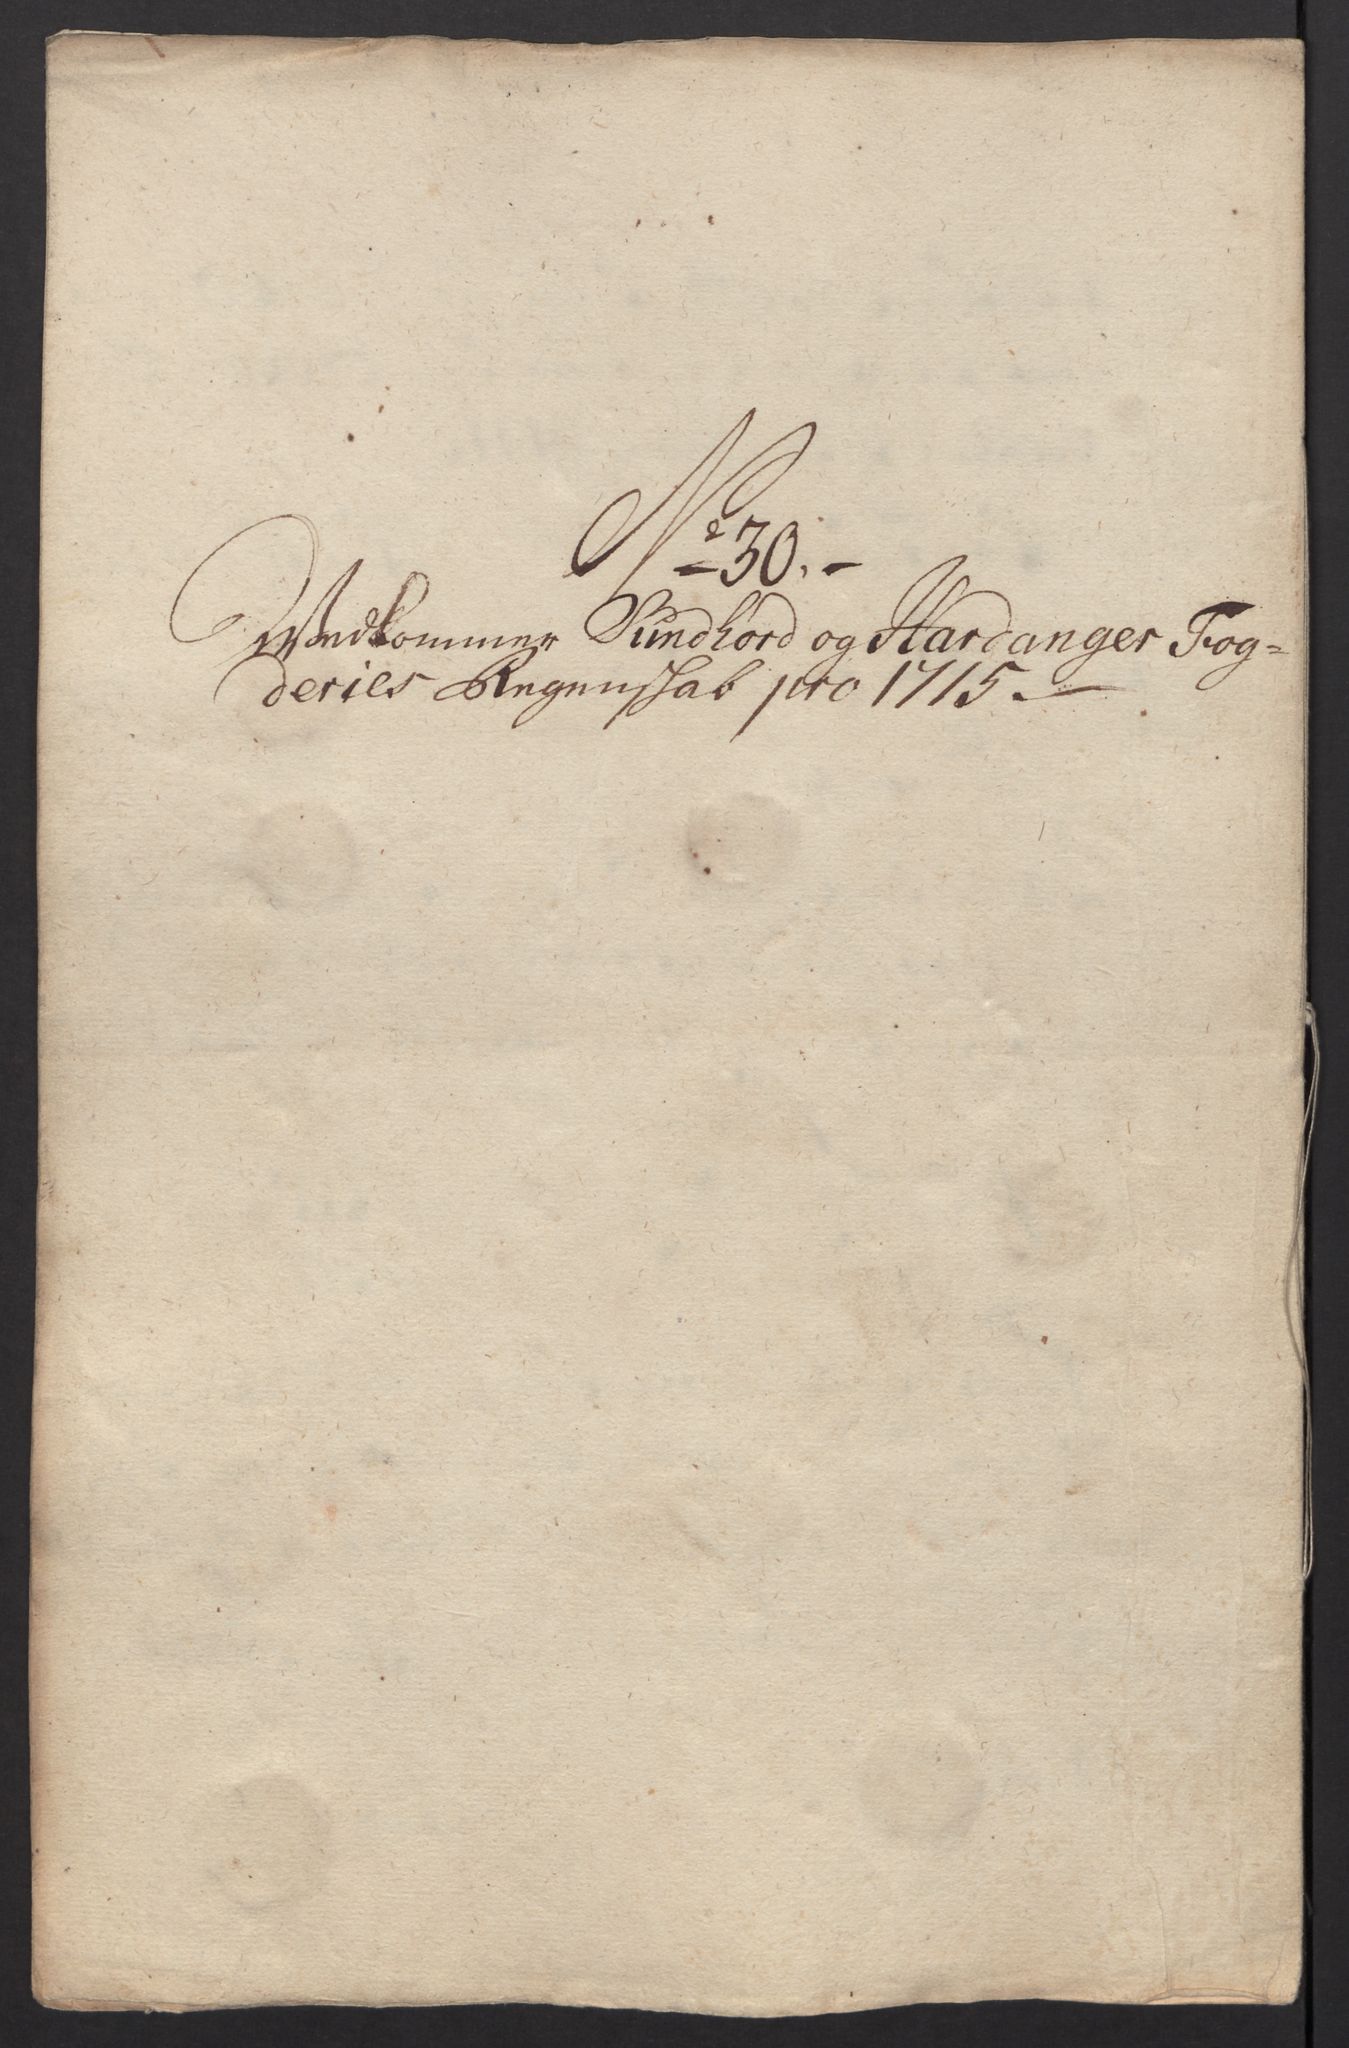 No 30.
Vedkommer Sundhord og Hardanger Fog=
deries Regenschab pro 1715.